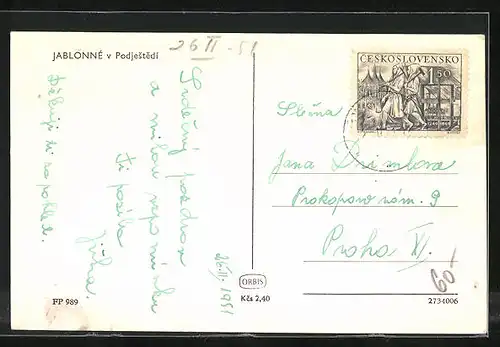 JABLONNÉ v Podještědí
26 II - 51
Srdečný pozdrav
a milou vzpomínku
Ti posílá
Jirka.
26.II. 1951
Děkuji ti za pohled.
ČESKOSLOVENSKO
1,50
Slečna
Jana
Prokopovo nám. 9
Praha XI.
60-
ORBIS
FP 989
Kčs 2,40
2734006